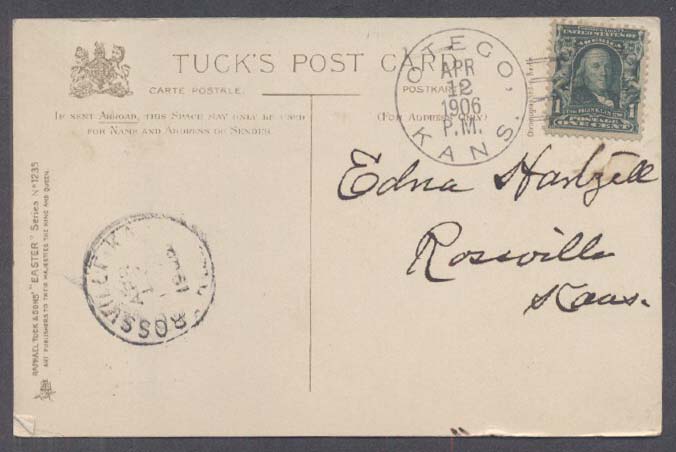 TUCK'S POST CARD
CARTE POSTALE. POSTKARTE.
IF SENT ABROAD, THIS SPACE MAY ONLY BE USED
FOR NAME AND ADDRESS OF SENDER.
(FOR ADDRESS ONLY)
OTEGO,
APR
12
1906
P.M.
KANS.
UNITED STATES OF
AMERICA
FRANKLIN
1 POSTAGE 1
ONE CENT
Edna Hartzell
Rossville
Kans.
RAPHAEL TUCK & SONS' "EASTER" Series No 1235
ART PUBLISHERS TO THEIR MAJESTIES THE KING AND QUEEN.
ROSSVILLE
APR